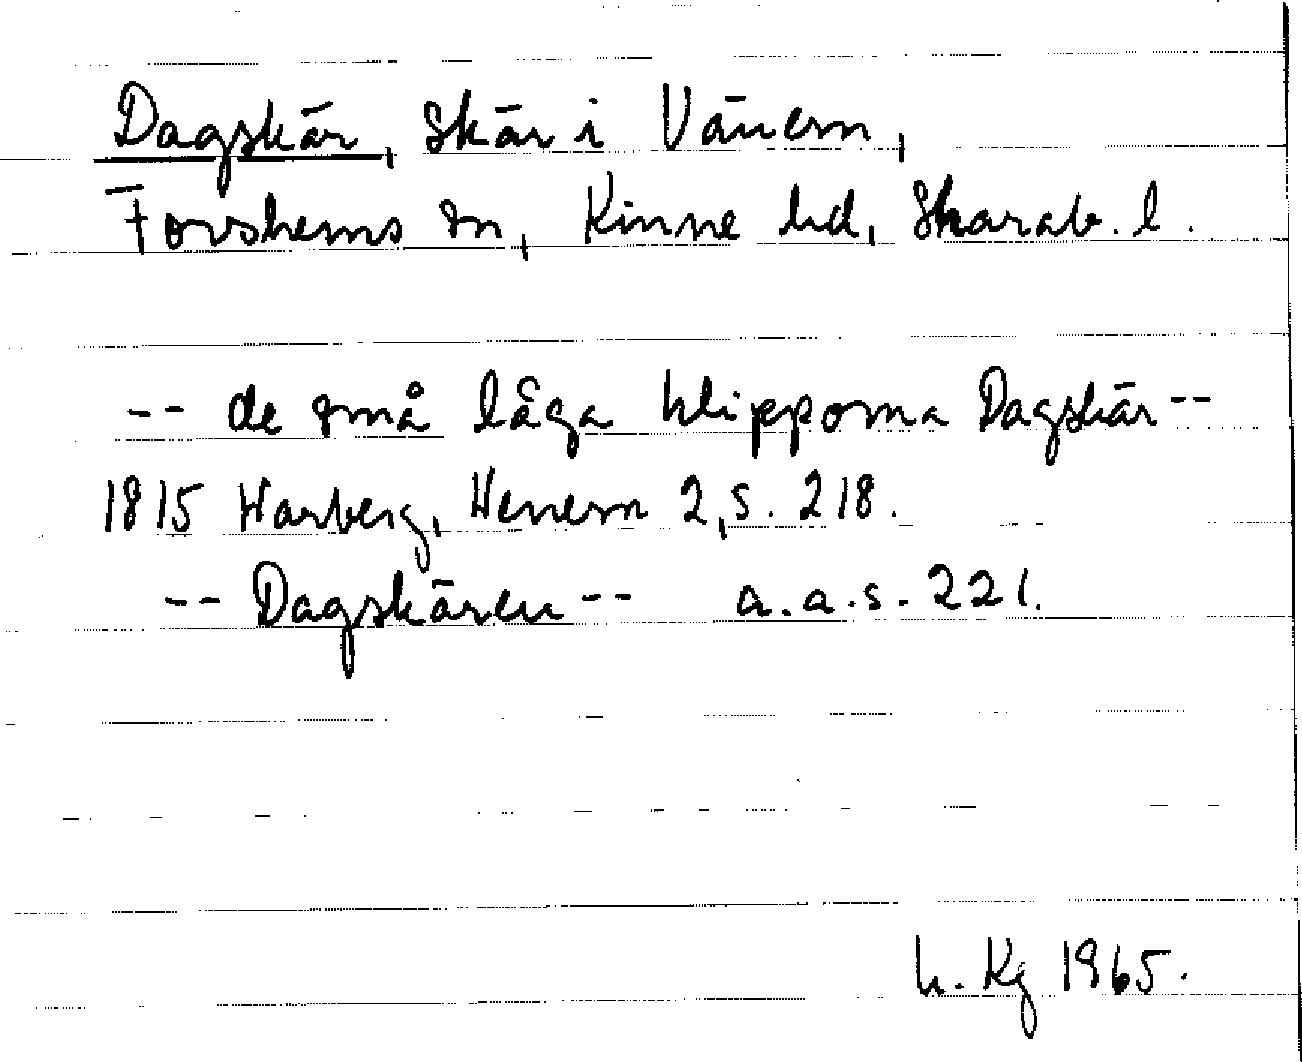 Dagskär, skär i Vänern,
Forshems sn, Kinne hd, Skarab. l.
-- de små låga klipporna Dagskär --
1815 Warberg, Wenern 2, s. 218.
-- Dagskären -- a.a.s. 221.
h. Kg 1965.